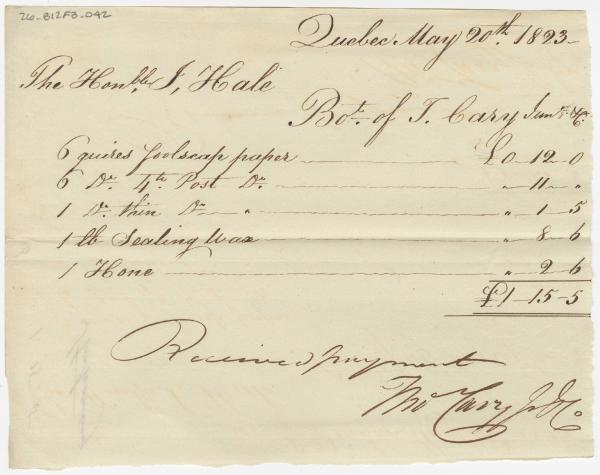 26-B12F3-042
Quebec May 20th. 1823
The Honble. J, Hale
Bot. of T. Cary Junr. & Co.
6 quires foolscap paper £0 12 0
6 Do. 4to. Post Do. " 11 "
1 Do. thin Do. " " 1 5
1 lb Sealing Wax " 8 6
1 Hone " 2 6
£1 15 5
Received payment
Tho Cary Jr & Co